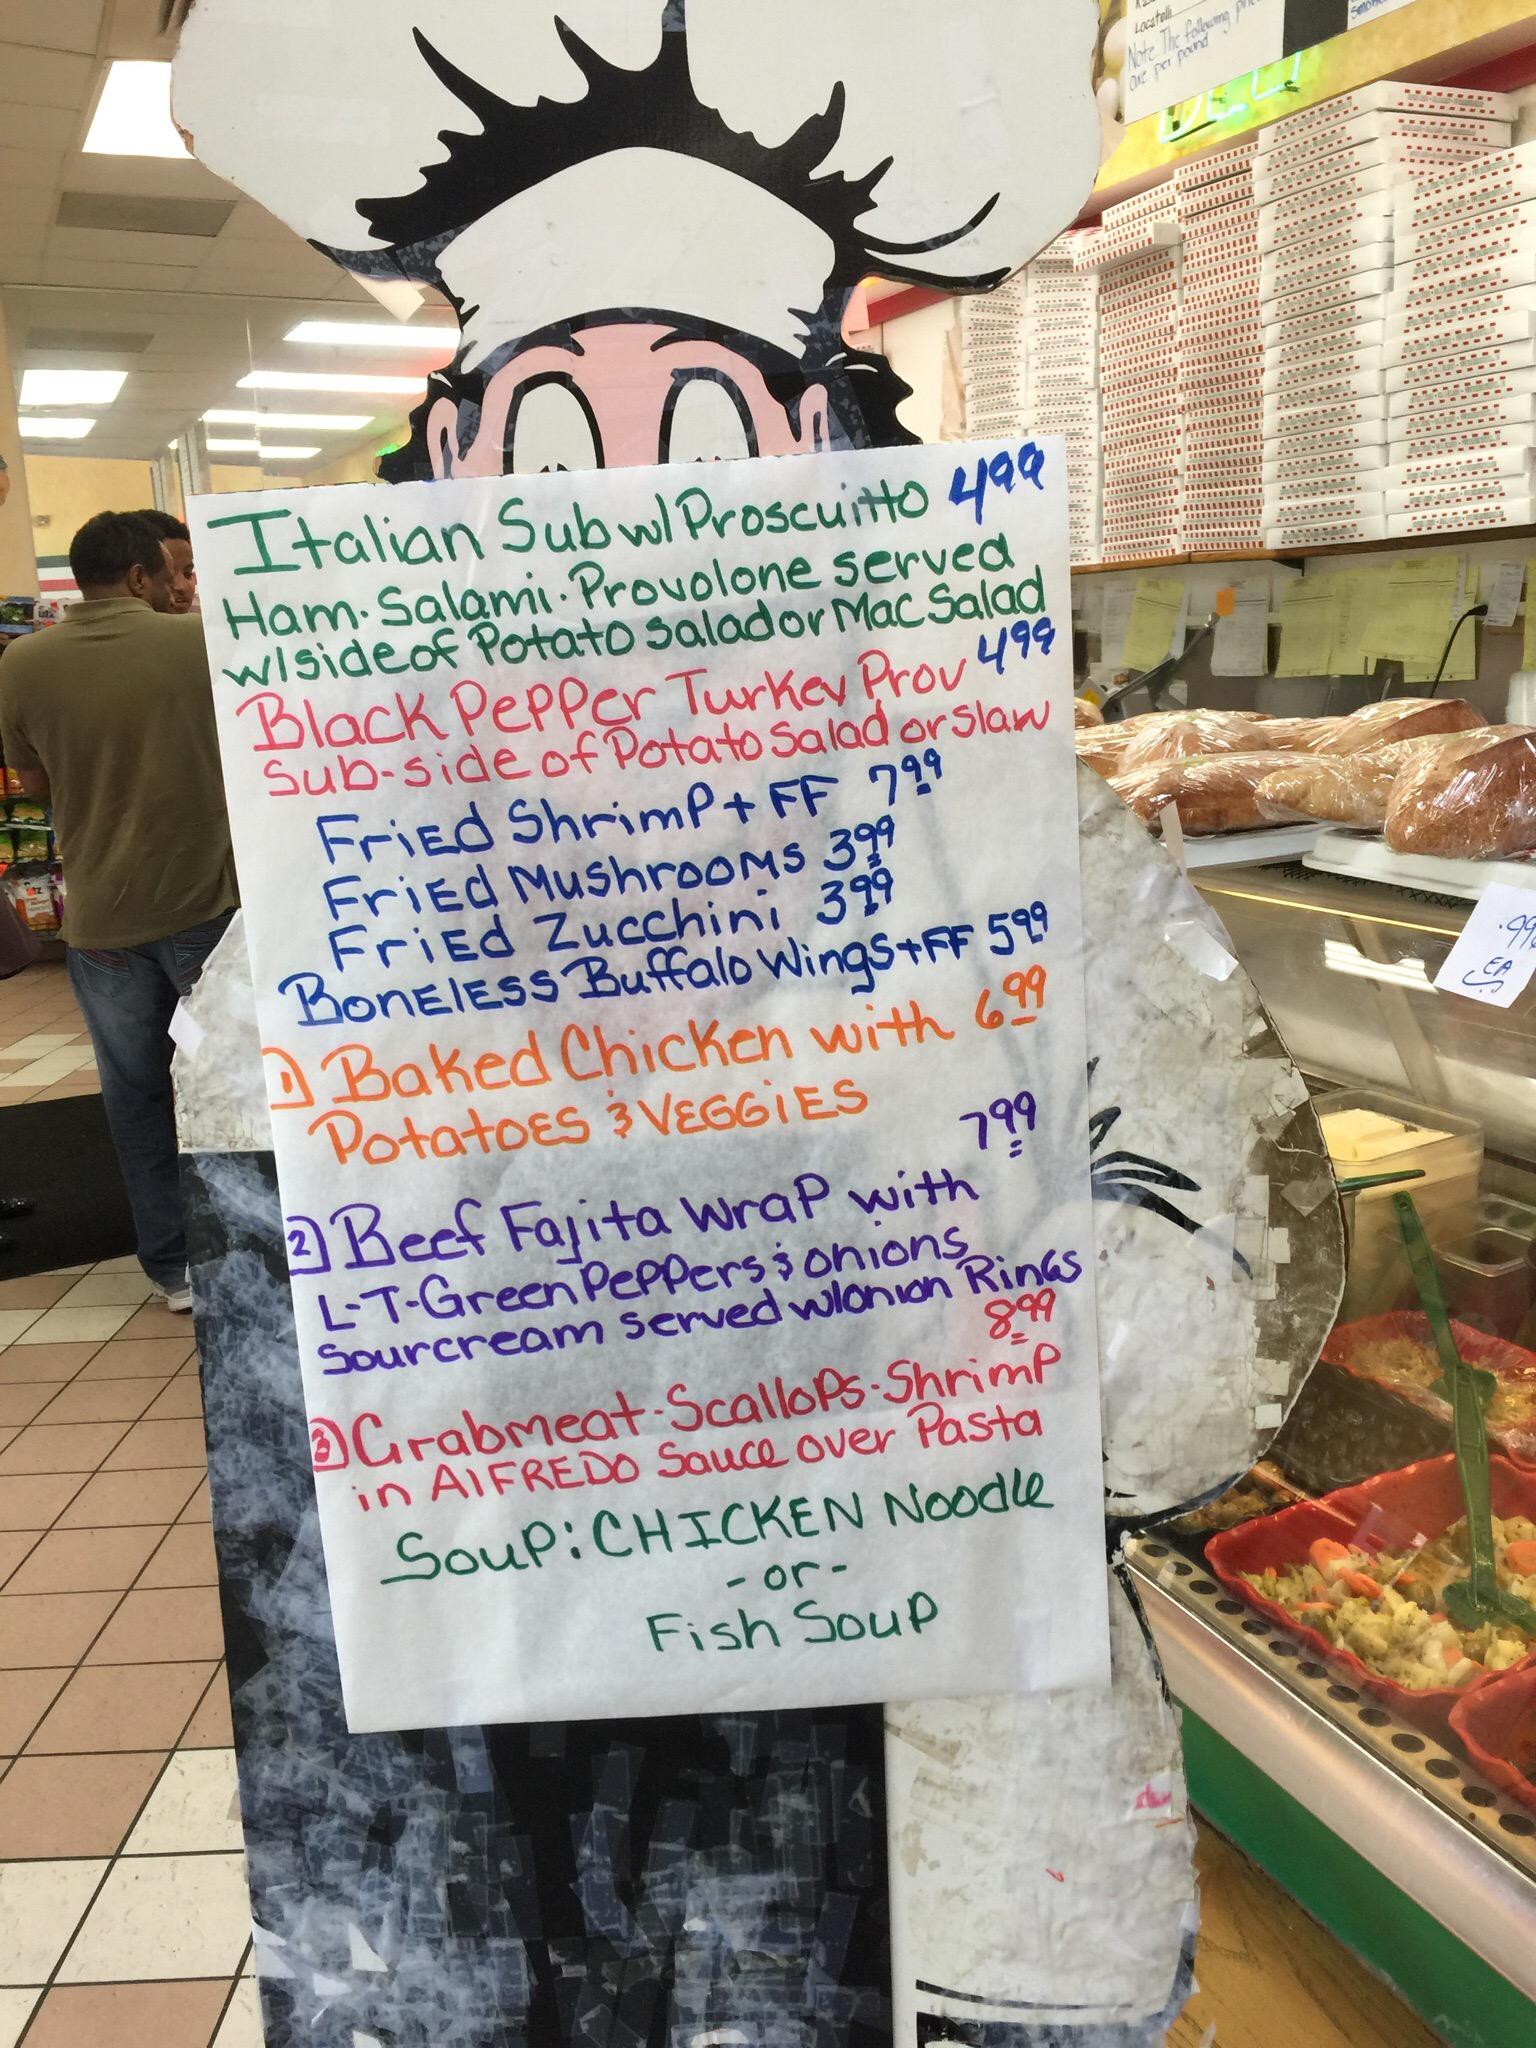 Locatelli
Note The following
are per pound
DELI
Italian Sub w/Proscuitto 4⁹⁹
Ham·Salami·Provolone served
w/side of Potato salad or Mac Salad
Black Pepper Turkey Prov 4⁹⁹
Sub-side of Potato Salad or Slaw
Fried Shrimp + FF 7⁹⁹
Fried Mushrooms 3⁹⁹
Fried Zucchini 3⁹⁹
Boneless Buffalo Wings + FF 5⁹⁹
1) Baked Chicken with 6⁹⁹
Potatoes & Veggies
7⁹⁹
2) Beef Fajita Wrap with
L-T-Green Peppers & onions
sourcream served w/onion Rings
8⁹⁹
3) Crabmeat-Scallops-Shrimp
in AlFREDO Sauce over Pasta
Soup: CHICKEN Noodle
-or-
Fish Soup
.99¢
EA